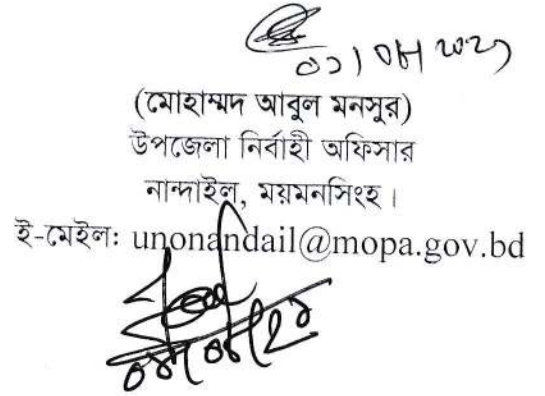 (মোহাম্মদ আবুল মনসুর)
উপজেলা নির্বাহী অফিসার
নান্দাইল, ময়মনসিংহ।
ই-মেইলঃ unonandail@mopa.gov.bd